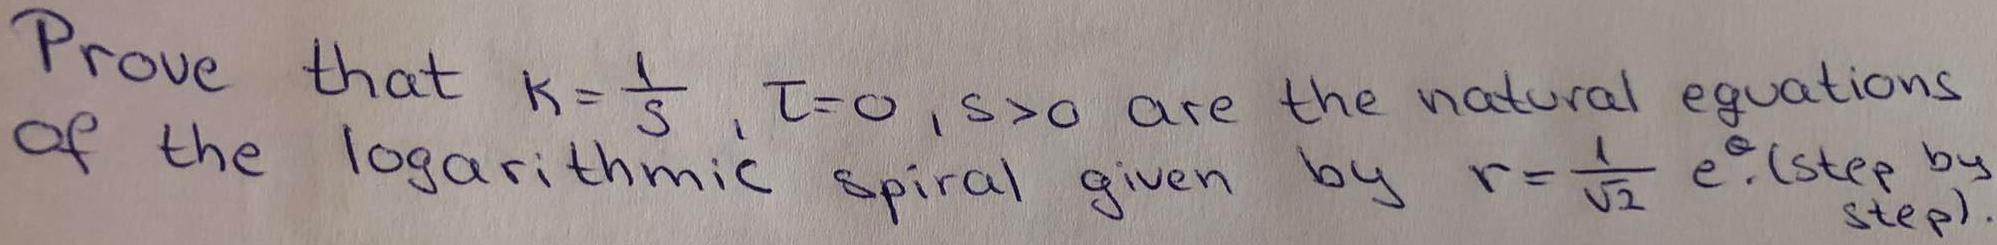 Prove that κ = 1/s, τ=0, s>0 are the natural equations
of the logarithmic spiral given by r = 1/√2 e^θ. (step by
step).